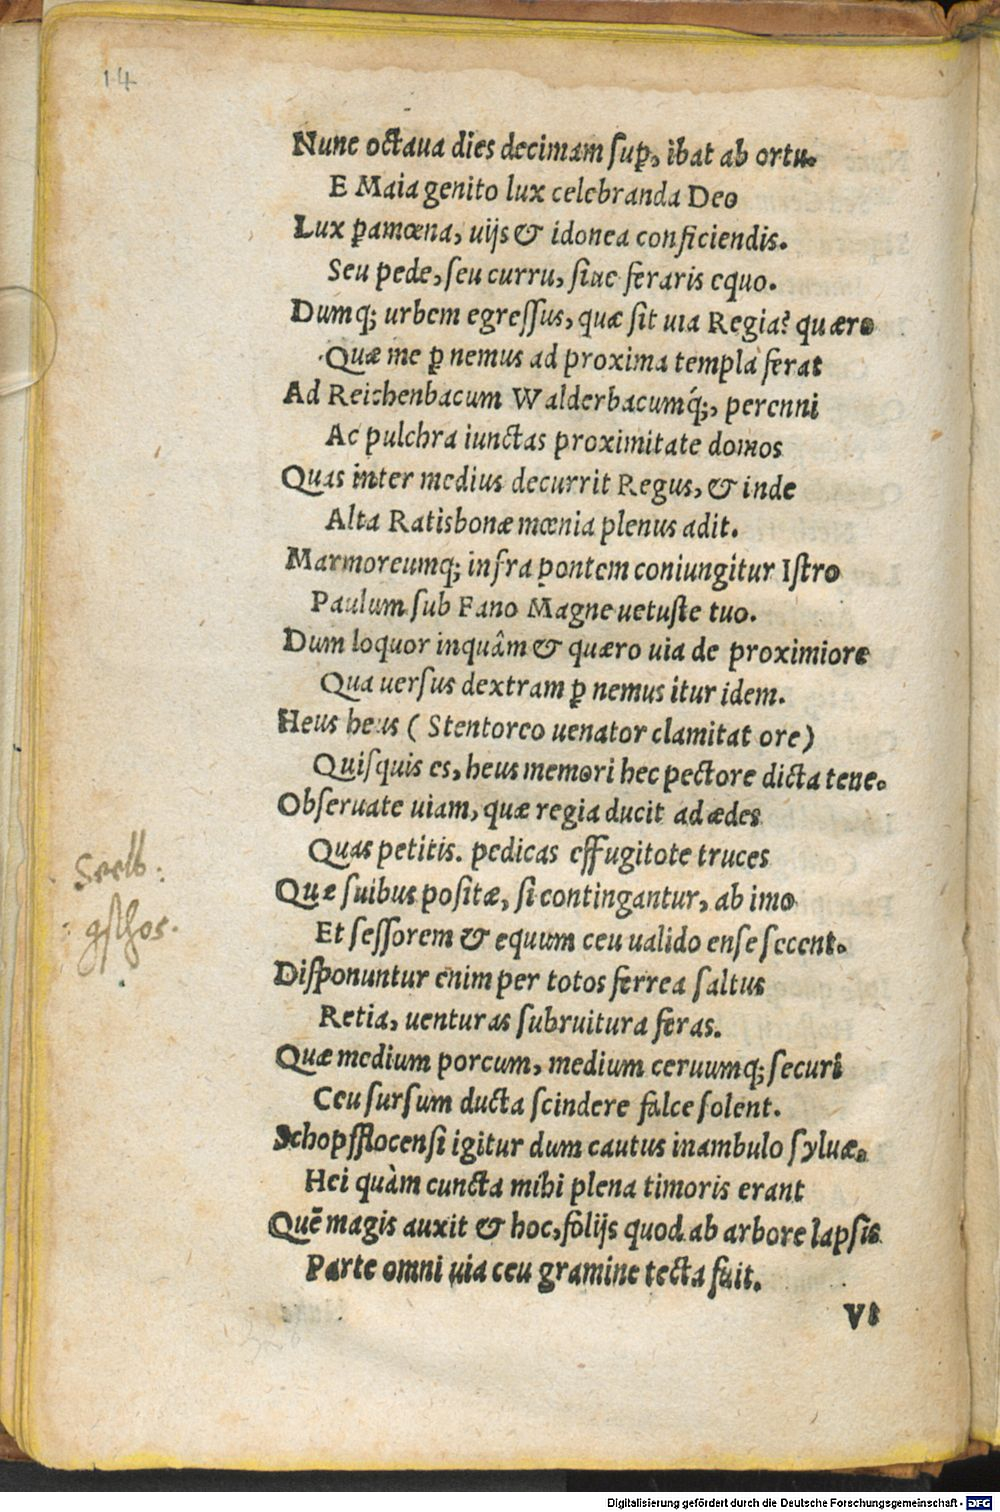 14
Nunc octaua dies decimam sup, ibat ab ortu.
E Maia genito lux celebranda Deo
Lux p̄amœna, uijs & idonea conficiendis.
Seu pede, seu curru, siue feraris equo.
Dumq; urbem egressus, quæ sit uia Regia? quæro
Quæ me ꝑ nemus ad proxima templa ferat
Ad Reichenbacum Walderbacumq́;, perenni
Ac pulchra iunctas proximitate domos
Quas inter medius decurrit Regus, & inde
Alta Ratisbonæ mœnia plenus adit.
Marmoreumq; infra pontem coniungitur Istro
Paulum sub Fano Magne uetuste tuo.
Dum loquor inquâm & quæro uia de proximiore
Qua uersus dextram ꝑ nemus itur idem.
Heus heus ( Stentoreo uenator clamitat ore)
Quisquis es, heus memori hec pectore dicta tene.
Obseruate uiam, quæ regia ducit ad ædes
Quas petitis. pedicas effugitote truces
Quæ suibus positæ, si contingantur, ab imo
Et sessorem & equum ceu ualido ense secent.
Disponuntur enim per totos ferrea saltus
Retia, uenturas subruitura feras.
Quæ medium porcum, medium ceruumq; securi
Ceu sursum ducta scindere falce solent.
Schopfflocensi igitur dum cautus inambulo syluæ.
Hei quàm cuncta mihi plena timoris erant
Quē magis auxit & hoc, folijs quod ab arbore lapsis
Parte omni uia ceu gramine tecta fuit.
Vt
Digitalisierung gefördert durch die Deutsche Forschungsgemeinschaft - DFG